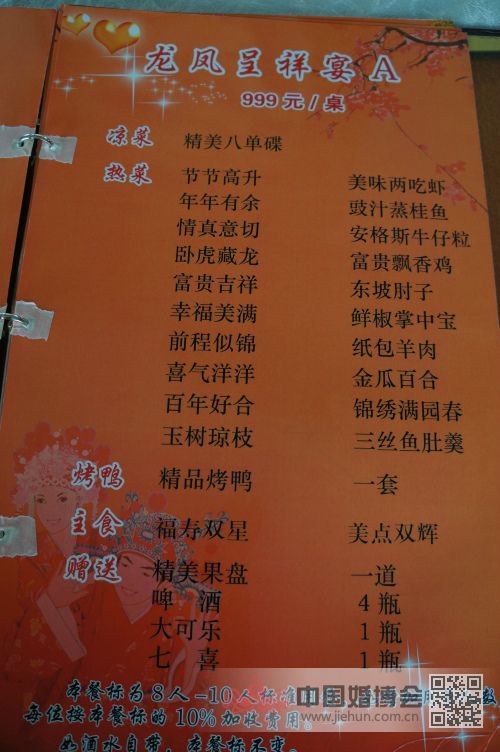 龙凤呈祥宴 A
999 元 / 桌
凉菜 精美八单碟
热菜 节节高升 美味两吃虾
年年有余 豉汁蒸桂鱼
情真意切 安格斯牛仔粒
卧虎藏龙 富贵飘香鸡
富贵吉祥 东坡肘子
幸福美满 鲜椒掌中宝
前程似锦 纸包羊肉
喜气洋洋 金瓜百合
百年好合 锦绣满园春
玉树琼枝 三丝鱼肚羹
烤鸭 精品烤鸭 一套
主食 福寿双星 美点双辉
赠送 精美果盘 一道
啤 酒 4 瓶
大可乐 1 瓶
七 喜 1 瓶
本餐标为8人-10人标准
每位按本餐标的10%加收费用。
如酒水自带，本餐标不变。
中国婚博会
www.jiehun.com.cn